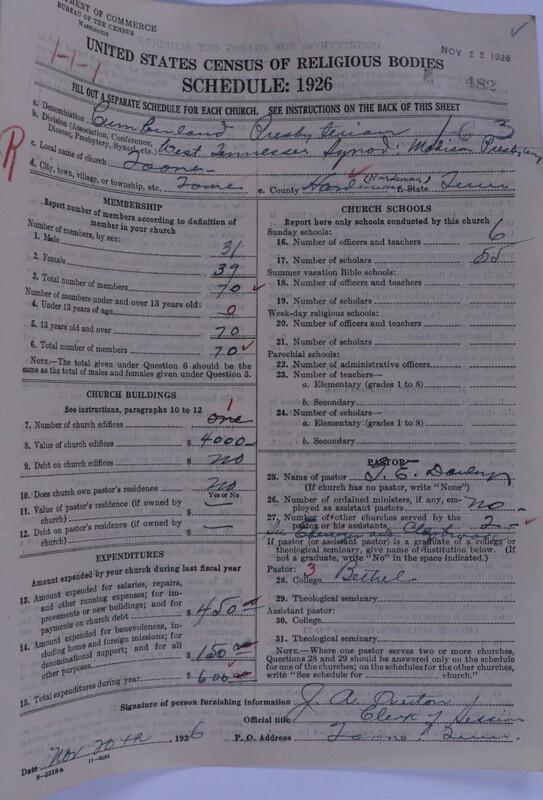 MENT OF COMMERCE
BUREAU OF THE CENSUS
WASHINGTON
NOV 22 1926
1-1-1
UNITED STATES CENSUS OF RELIGIOUS BODIES
482
SCHEDULE: 1926
FILL OUT A SEPARATE SCHEDULE FOR EACH CHURCH. SEE INSTRUCTIONS ON THE BACK OF THIS SHEET
a. Denomination Cumberland Presbyterian 1 6 3
b. Division (Association, Conference, Diocese, Presbytery, Synod, etc.) West Tennessee Synod: Madison Presbytery
R
c. Local name of church Toone
d. City, town, village, or township, etc. Toone e. County (Hardeman) f. State Tenn
MEMBERSHIP
Report number of members according to definition of member in your church
Number of members, by sex:
1. Male 31
2. Female 39
3. Total number of members 70
Number of members under and over 13 years old:
4. Under 13 years of age 0
5. 13 years old and over 70
6. Total number of members 70
NOTE.—The total given under Question 6 should be the same as the total of males and females given under Question 3.
CHURCH BUILDINGS
See instructions, paragraphs 10 to 12
1
7. Number of church edifices one
8. Value of church edifices $ 4000
9. Debt on church edifices $ No
10. Does church own pastor's residence No
Yes or No
11. Value of pastor's residence (if owned by church) $ —
12. Debt on pastor's residence (if owned by church) $ —
EXPENDITURES
Amount expended by your church during last fiscal year
13. Amount expended for salaries, repairs, and other running expenses; for improvements or new buildings; and for payments on church debt $ 450.00
14. Amount expended for benevolences, including home and foreign missions; for denominational support; and for all other purposes $ 150.00
15. Total expenditures during year $ 600.00
CHURCH SCHOOLS
Report here only schools conducted by this church
Sunday schools:
16. Number of officers and teachers 6
17. Number of scholars 55
Summer vacation Bible schools:
18. Number of officers and teachers
19. Number of scholars
Week-day religious schools:
20. Number of officers and teachers
21. Number of scholars
Parochial schools:
22. Number of administrative officers
23. Number of teachers—
a. Elementary (grades 1 to 8)
b. Secondary
24. Number of scholars—
a. Elementary (grades 1 to 8)
b. Secondary
PASTOR
25. Name of pastor
(If church has no pastor, write "None")
26. Number of ordained ministers, if any, employed as assistant pastors No
27. Number of other churches served by the pastor or his assistants 2
If pastor (or assistant pastor) is a graduate of a college or theological seminary, give name of institution below. (If not a graduate, write "No" in the space indicated.)
Pastor: 3
28. College Bethel
29. Theological seminary
Assistant pastor:
30. College
31. Theological seminary
NOTE.—Where one pastor serves two or more churches, Questions 28 and 29 should be answered only on the schedule for one of the churches; on the schedules for the other churches, write "See schedule for church."
Signature of person furnishing information
Official title Clerk of Session
Date Nov 20th, 1926 P. O. Address Toone, Tenn.
8-5218a 11-9034